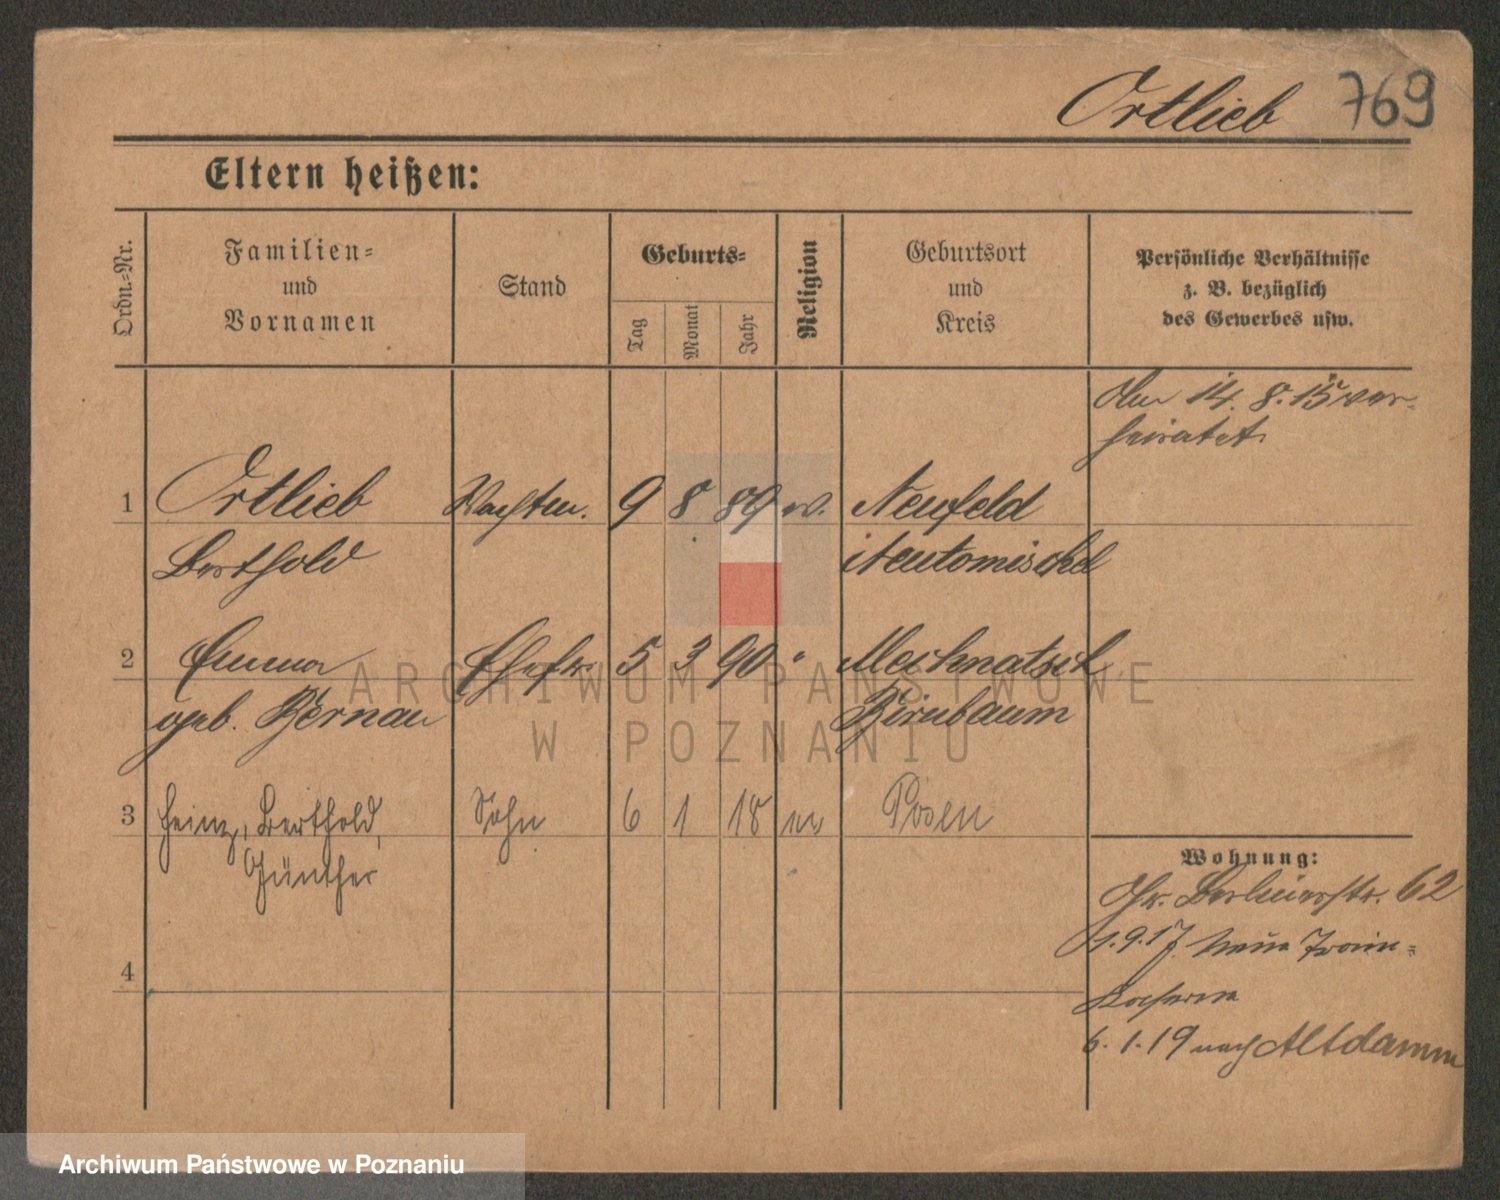 Ortlieb 769
Eltern heißen:
Ordn.-Nr.
Familien-
und
Vornamen
Stand
Geburts-
Tag
Monat
Jahr
Religion
Geburtsort
und
Kreis
Persönliche Verhältnisse
z. B. bezüglich
des Gewerbes usw.
14. 8. 15 ver-
heiratet
1 Ortlieb Wachtm. 9 8 89 ev. Neufeld
Berthold Neutomischel
2 Emma Ehefr. 5 3 90 " Mechnatsch
geb. Bernau Birnbaum
3 Heinz, Berthold, Sohn 6 1 18 ev Posen
Günther
4
Wohnung:
Gr. Berlinerstr. 62
1.9.17. Neue Train-
Kaserne
6. 1. 19 nach Altdamm
ARCHIWUM PAŃSTWOWE
W POZNANIU
Archiwum Państwowe w Poznaniu